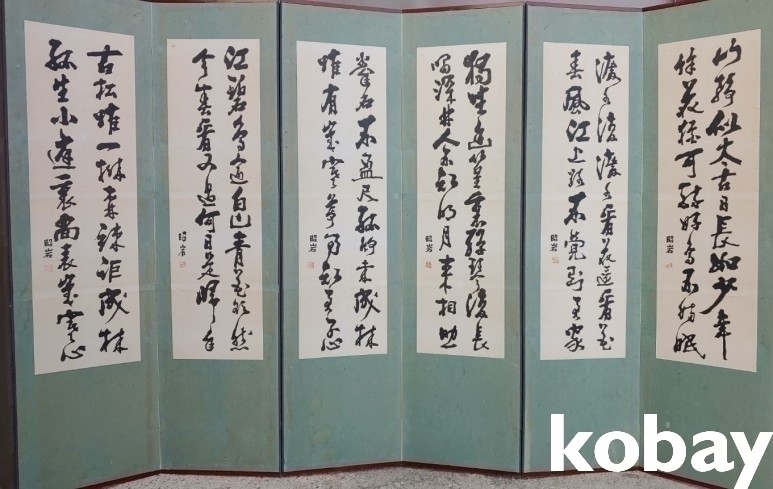 山靜似太古日長如少年
餘花猶可醉好鳥不妨眠
昭岩
渡水復渡水看花還看花
春風江上路不覺到君家
昭岩
獨坐幽篁裏彈琴復長
嘯深林人不知明月來相照
昭岩
拳石不盈尺孤竹未成林
惟有歲寒節乃知君子心
昭岩
江碧鳥逾白山青花欲然
今春看又過何日是歸年
昭岩
古松唯一株森疎詎成林
孤生小庭裏尚表歲寒心
昭岩
kobay